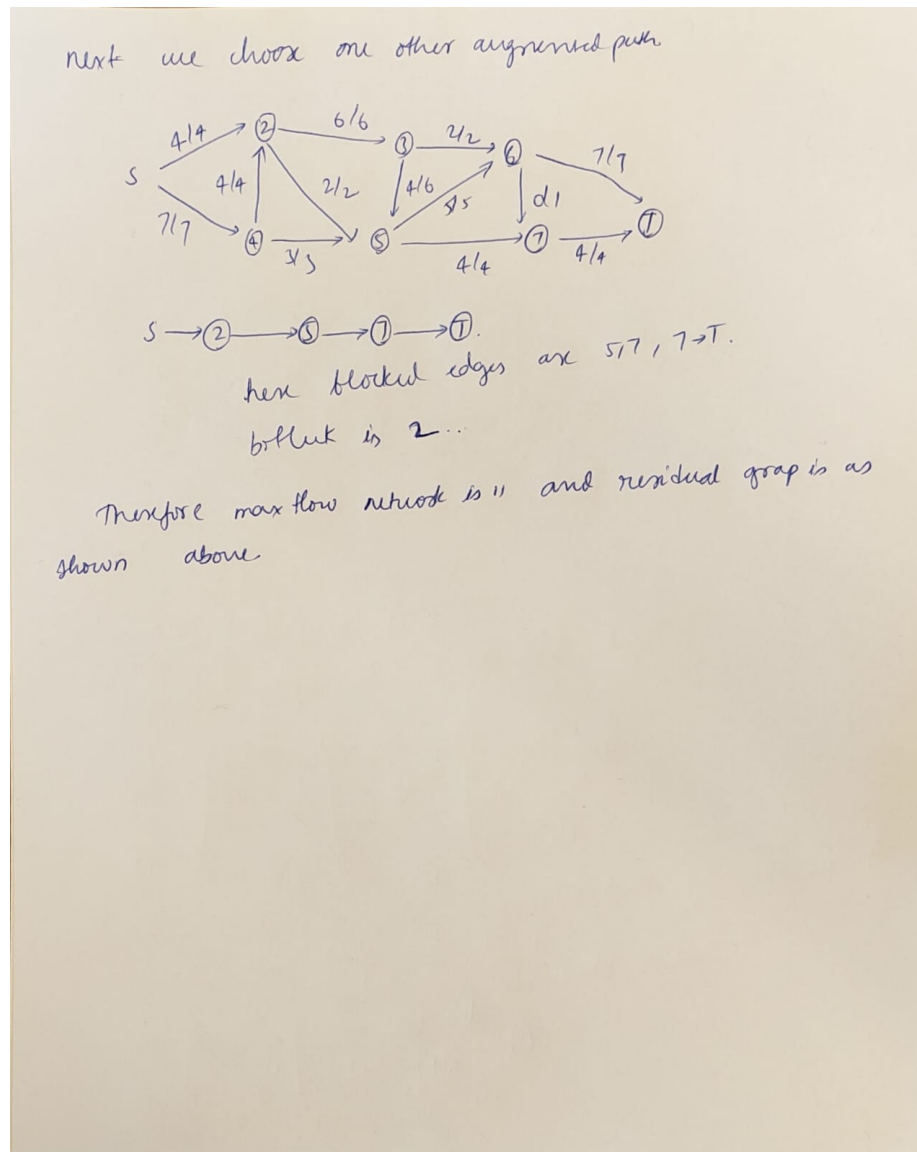 next we choox one other augmented path
4/4
6/6
2/2
7/7
S
2
3
6
4/4
2/2
4/6
5/5
d1
7/7
4
3/3
5
4/4
7
4/4
T
S → 2 → 5 → 7 → T.
here blocked edges are 5,7, 7→T.
is 2...
Therefore max flow network is 11 and residual grap is as
shown above